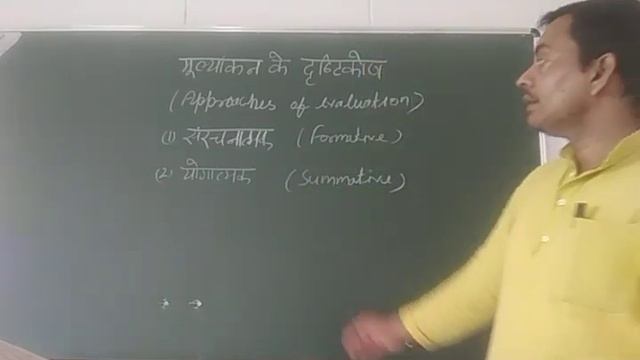 मूल्यांकन के दृष्टिकोण
(Approaches of evaluation)
(1) संरचनात्मक (Formative)
(2) योगात्मक (Summative)